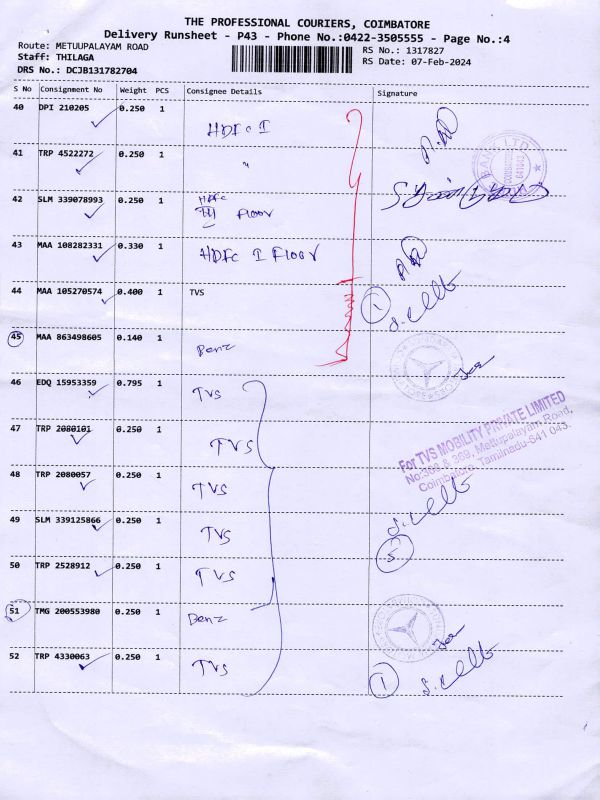 THE PROFESSIONAL COURIERS, COIMBATORE
Delivery Runsheet - P43 - Phone No.:0422-3505555 - Page No.:4
Route: METUUPALAYAM ROAD
RS No.: 1317827
Staff: THILAGA
RS Date: 07-Feb-2024
DRS No.: DCJB131782704
S No Consignment No Weight PCS Consignee Details Signature
40 DPI 210205 0.250 1 HDFC I
41 TRP 4522272 0.250 1 "
BANK LTD
42 SLM 339078993 0.250 1 HDFC
III FLOOR
43 MAA 108282331 0.330 1 HDFC I FLOOR
44 MAA 105270574 0.400 1 TVS 1
45 MAA 863498605 0.140 1 Benz
46 EDQ 15953359 0.795 1 TVS
47 TRP 2080101 0.250 1 TVS
For TVS MOBILITY PRIVATE LIMITED
No:368 & 369, Mettupalayam Road,
Coimbatore, Tamilnadu-641 043.
48 TRP 2080057 0.250 1 TVS
49 SLM 339125866 0.250 1 TVS
5
50 TRP 2528912 0.250 1 TVS
51 TMG 200553980 0.250 1 Benz
52 TRP 4330063 0.250 1 TVS 1